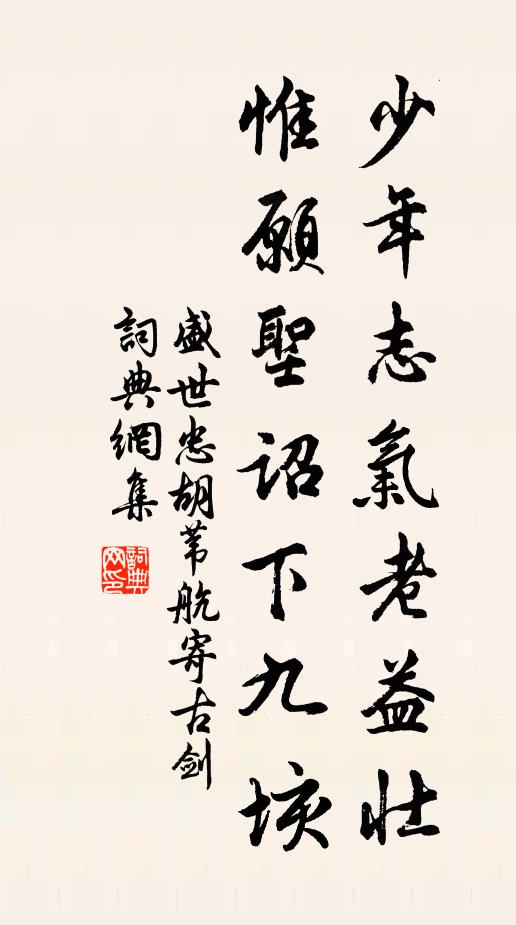 少年志氣老益壯
惟願聖詔下九垓
盛世忠胡苇航寄古劍
詞典網集
詞典網印